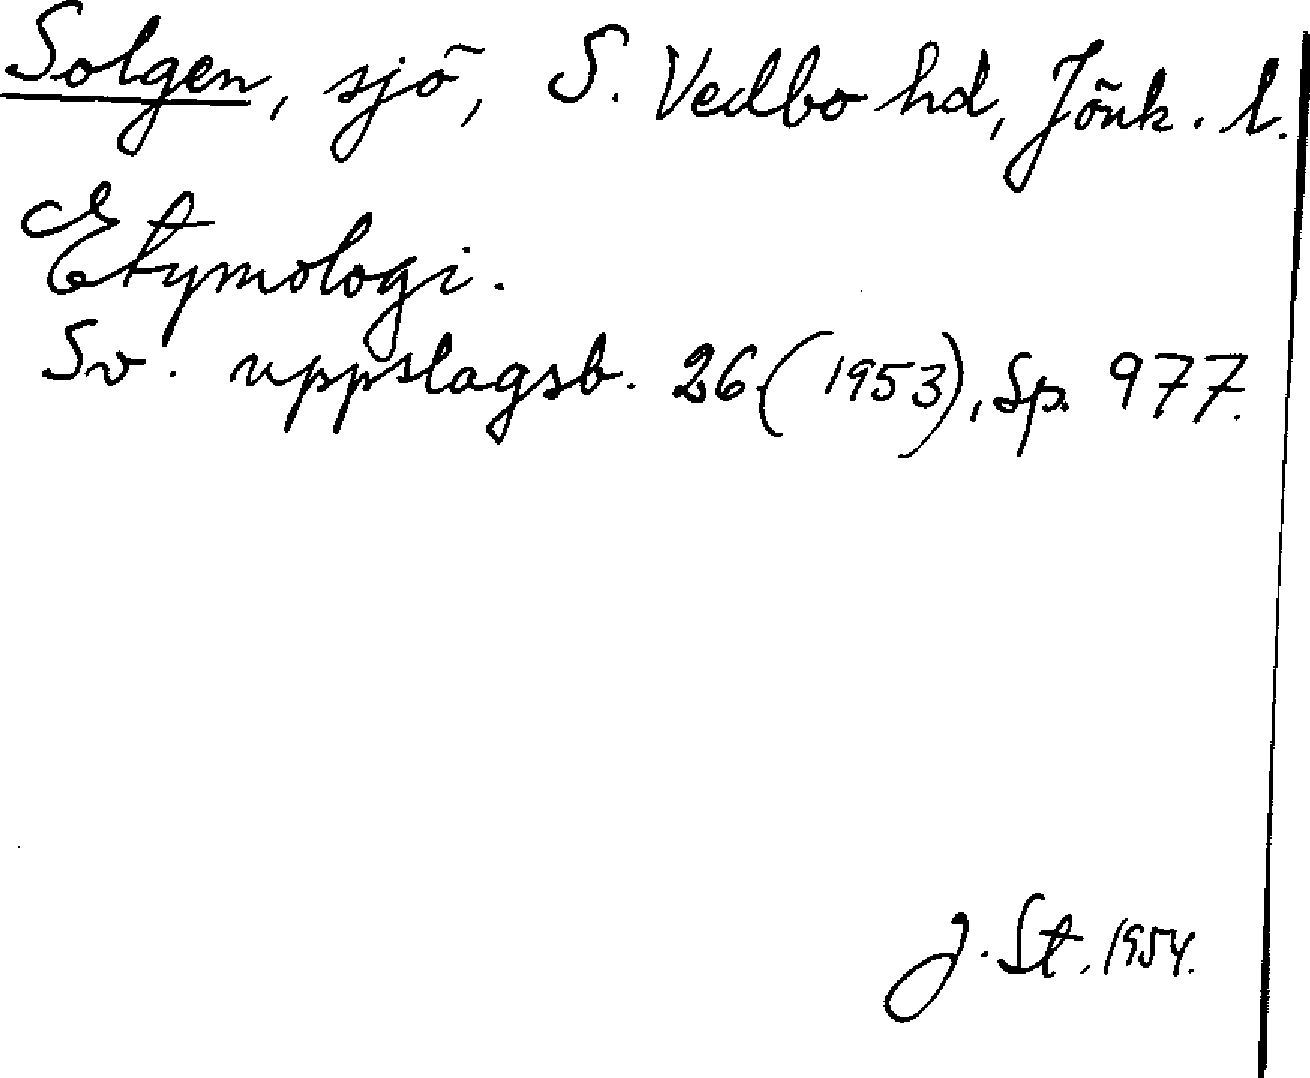 Solgen, sjö, S. Vedbo hd, Jönk. l.
Etymologi.
Sv. uppslagsb. 26 (1953), Sp. 977.
J. St. 1954.